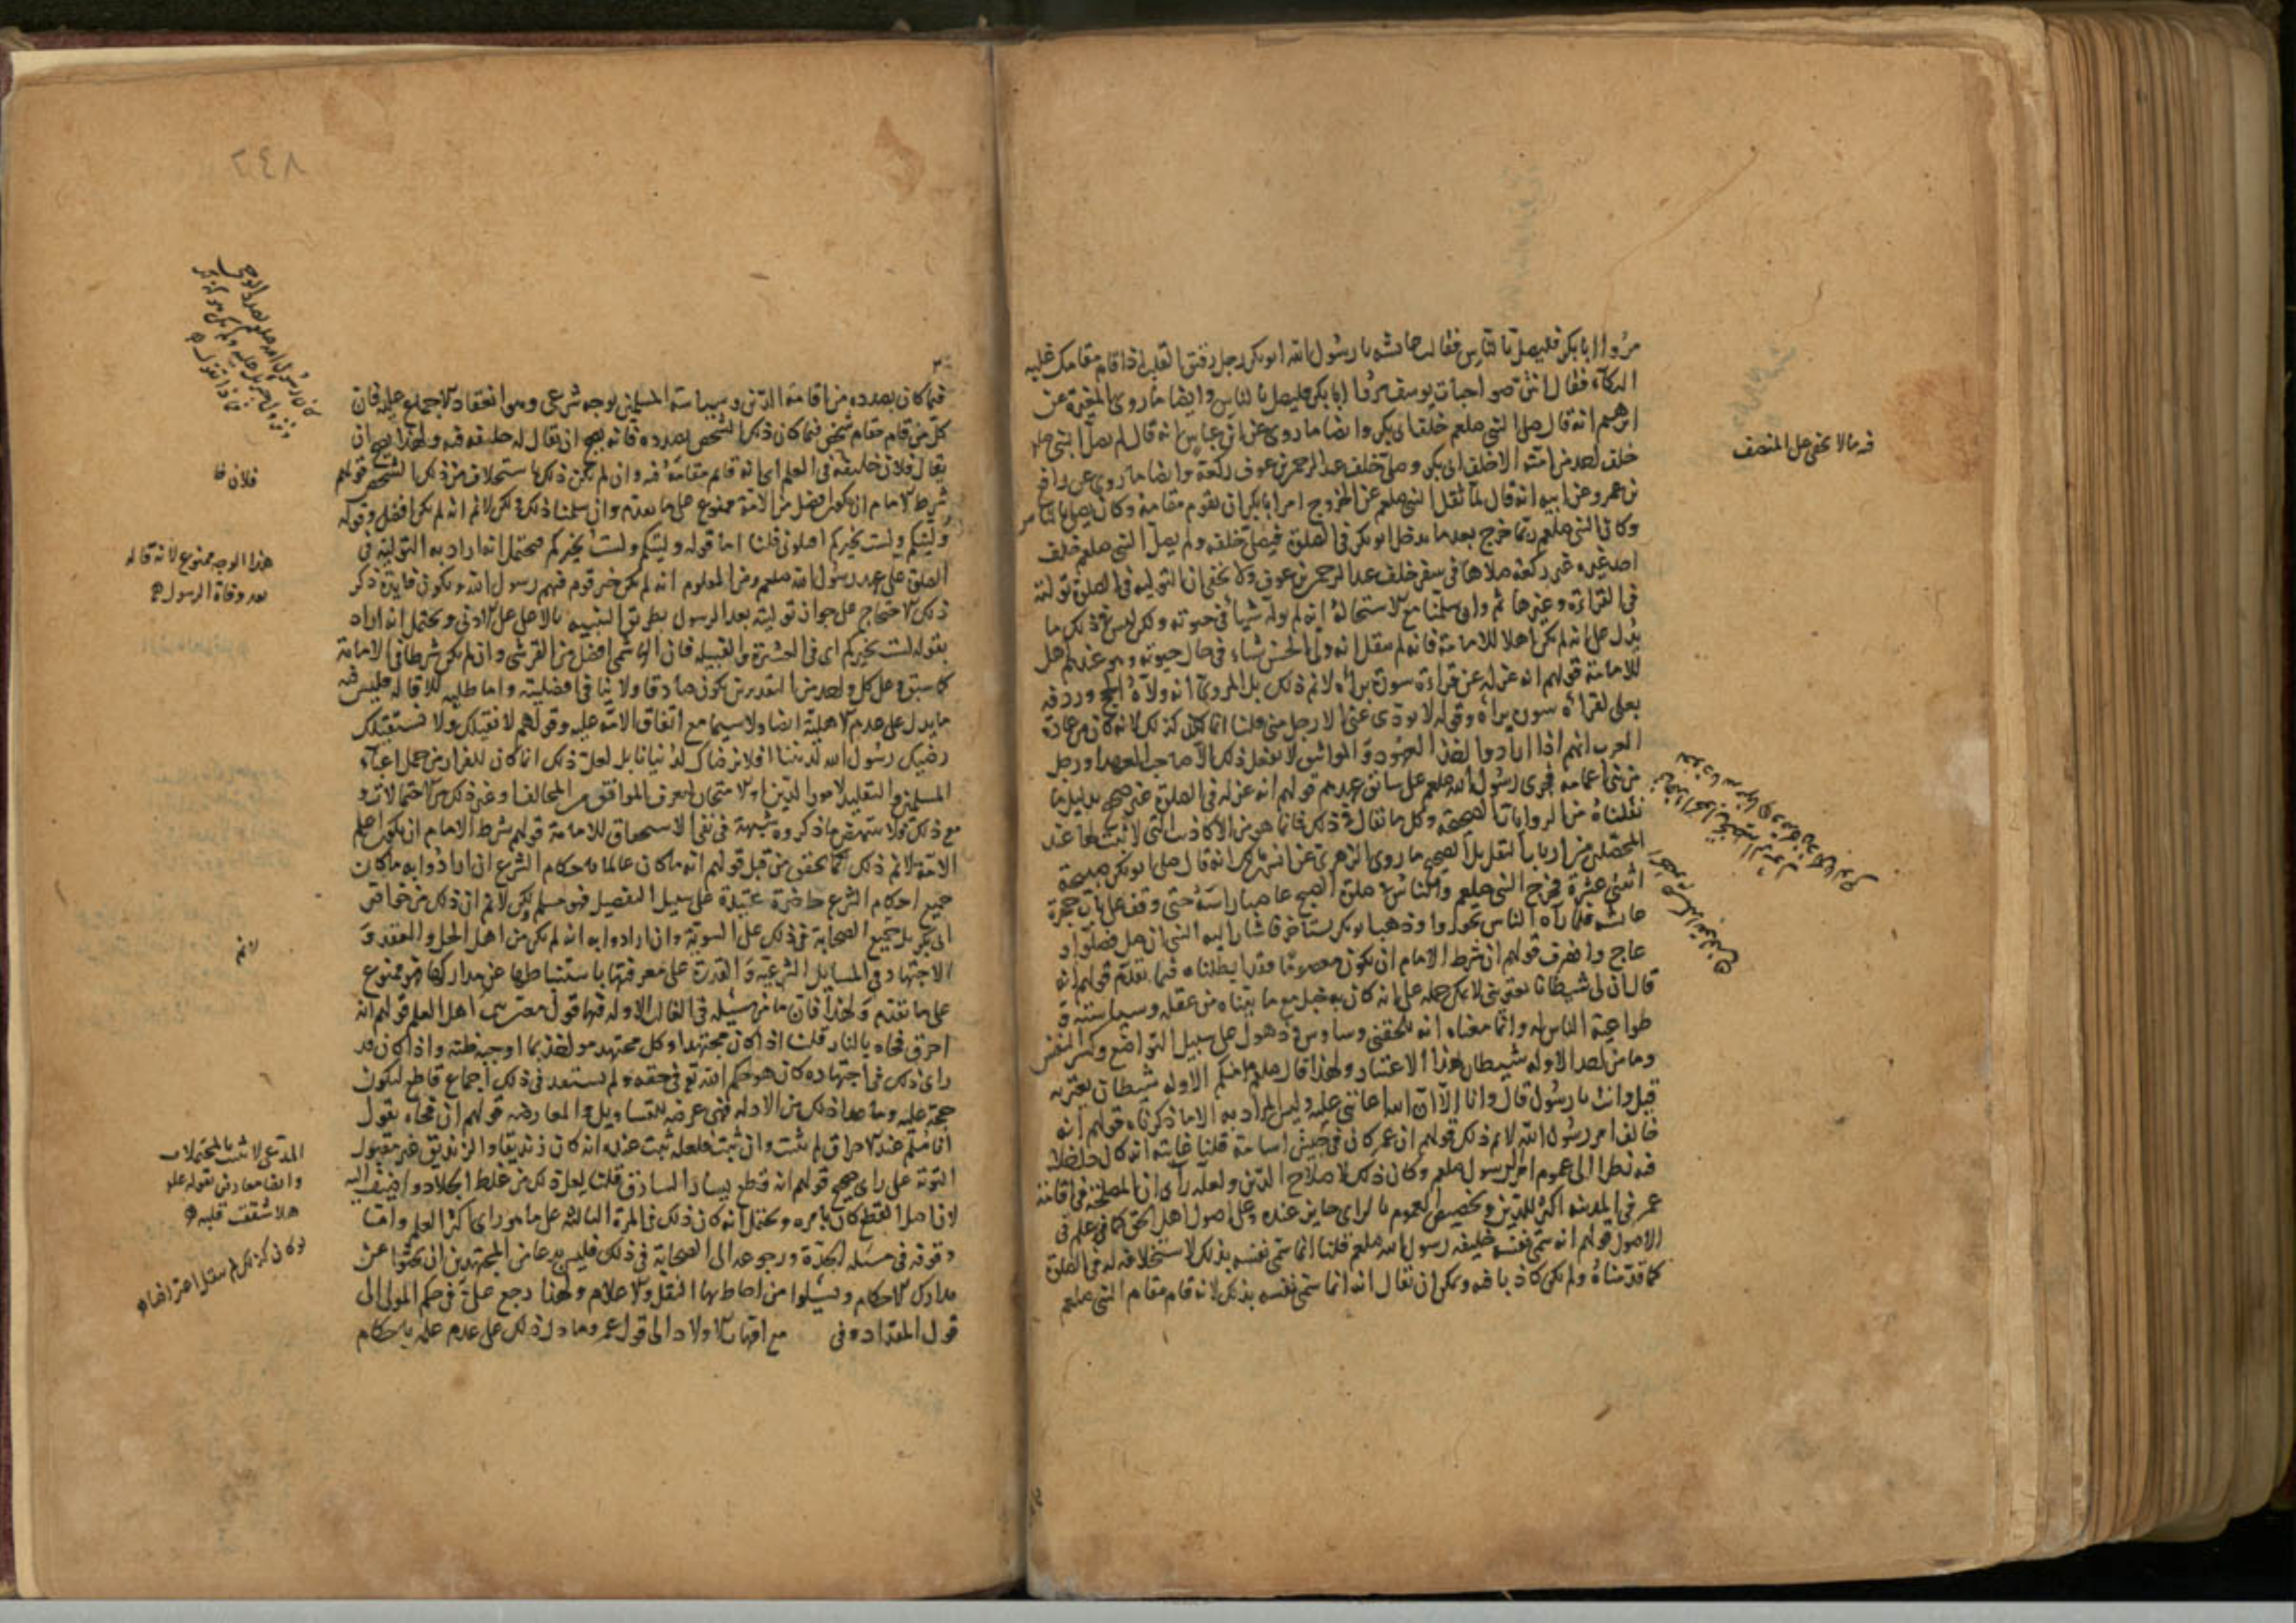 مروا ابا بكر فليصل بالناس فقالت عائشه يا رسول الله ابو بكر رجل رقيق القلب اذا قام مقامك غلبه
البكآء فقال انتن صواحبات يوسف مروا ابا بكر فليصل بالناس وايضا ما روى المغيرة عن
انه قال صلى النبى صلعم خلف ابى بكر وايضا ما روى عن ابن عباس انه قال لم يصل النبى صلعم
خلف احد من امته الا خلف ابى بكر وصلى خلف عبد الرحمن بن عوف ركعة وايضا ما روى عن رافع
بن عمرو عن ابيه انه قال لما ثقل النبى صلعم عن الخروج امر ابا بكر ان يقوم مقامه وكان يصلى بالناس
وكان النبى صلعم ربما خرج بعد ما يدخل ابو بكر فى الصلوة فيصلى خلفه ولم يصل النبى صلعم خلف
احد غيره غير ركعة صلاها فى سفر خلف عبد الرحمن بن عوف ولا يخفى ان التوليه فى الصلوة توليته
فى القراءة وغيرها ثم وان سلمنا مع الاستحالة انه لم يوله شيأ فى حيوته ولكن ليس فى ذلك ما
يدل على انه لم يكن اهلا للامامة فانه لم ينقل انه ولى الحسن شيأ فى حال حيوته وهو عندهم اهل
للامامة قولهم انه عزله عن قراءة سورة براءه لا نم ذلك بل المروى انه ولاه الحج وردفه
بعلى لقراءة سورة براءه وقوله لا يودى عنى الا رجل منى قلنا انما كان كذلك لانه كان من عادة
العرب انهم اذا ارادوا اخذ العهود والمواثيق لا يفعل ذلك الا صاحب العهد او رجل
من بنى اعمامه فجرى رسول الله صلعم على سابق عهدهم قولهم انه عزله فى الصلوة غير صحيح بدليل ما
نقلناه من الروايات الصحيحة وكل ما يقال فى ذلك فانما هو من الاكاذيب التى لا ثبت لها عند
المحصلين من ارباب النقل بل الصحيح ما روى الزهرى عن انس انه قال صلى ابو بكر صبيحة
اثنى عشرة فخرج النبى صلعم والناس فى صلوة الصبح عاصبا راسه حتى وقف على باب حجرة
عائشه فلما رآه الناس تحوزوا وذهب ابو بكر يستاخر فاشار اليه النبى ان صل فصلى ابو
وانصرف قولهم ان شرط الامام ان يكون معصوما فقد ابطلناه فيما تقدم قولهم انه
قال ان لى شيطانا يعترينى لا يمكن حمله على انه كان به خبل مع ما بيناه من عقله وسياسته و
طواعية الناس له وانما معناه انه يلحقنى وساوس وذهول على سبيل التواضع وكسر النفس
وما من احد الا وله شيطان بهذا الاعتبار ولهذا قال صلعم ما منكم الا وله شيطان يعتريه
قيل وانت يا رسول الله قال وانا الا ان الله اعاننى عليه وليس المراد به الا ما ذكرناه قولهم انه
خالف امر رسول الله لا نم ذلك قولهم ان عمر كان فى جيش اسامة قلنا غايته انه كان
فيه نظرا الى عموم امر الرسول صلعم وكان ذلك لاصلاح الدين ولعله رأى ان المصلحة فى اقامة
عمر فى المدينه اكثر للدين وتخصيص العموم بالراى جايز عنده وعلى اصول اهل الحق كما فى علم
الاصول قولهم انه سمى نفسه خليفه رسول الله صلعم قلنا انما سمى نفسه بذلك لاستخلافه له فى الصلوة
كما قدمناه ولم يكن كاذبا فيه ويمكن ان يقال انه انما سمى نفسه بذلك لانه قام مقام النبى صلعم
فيه ما لا يخفى على المنصف
٨٤٢
فيما كان بصدده من اقامة الدين وسياسة المسلمين بوجه شرعى وهو انعقاد الاجماع عليه فان
كل من قام مقام شخص فيما كان ذلك الشخص بصدده فانه يصح ان يقال له خليفه فيه ولهذا يصح ان
يقال فلان خليفة فى العلم اى انه قايم مقامه فيه وان لم يكن ذلك باستخلاف من ذلك الشخص قولهم
شرط الامام ان يكون افضل من الامة ممنوع على ما تقدم وان سلمنا ذلك ولكن لا نم انه لم يكن افضل وقوله
وليتكم ولست بخيركم اقيلونى قلنا اما قوله وليتكم ولست بخيركم محتمل انه اراد به التولية فى
الصلوة على عهد رسول الله صلعم ومن المعلوم انه لم يكن خير قوم فيهم رسول الله ويكون فايدة ذكر
ذلك الاحتجاج على جواز توليته بعد الرسول بطريق التنبيه بالاعلى على الادنى ويحتمل انه اراد
بقوله لست بخيركم اى فى العشيرة والقبيلة فان الهاشمى افضل من القرشى وان لم يكن شرطا فى الامامة
كما سبق وعلى كل واحد من التقديرين يكون صادقا ولا ينافى افضليته واما طلبه للاقاله فليس فيه
ما يدل على عدم الاهلية ايضا ولا سيما مع اتفاق الامة عليه وقولهم لا نقيلك ولا نستقيلك
رضيك رسول الله لديننا افلا نرضاك لدنيانا بل لعل ذلك انما كان للفرار من حمل اعباء
المسلمين والتقليد لامور الدين او الامتحان ليعرف الموافق من المخالف او غير ذلك من الاحتمالات و
مع ذلك فلا ينتهض ما ذكروه شبهة فى نفى الاستحقاق للامامة قولهم شرط الامام ان يكون اعلم
الامة لا نم ذلك كما تحقق من قبل قولهم انه ما كان عالما باحكام الشرع ان ارادوا به ما كان
جميع احكام الشرع حاضرة عتيدة على سبيل التفصيل فهو مسلم ولكن لا نم ان ذلك من خواص
ابى بكر بل جميع الصحابة فى ذلك على السوية وان ارادوا به انه لم يكن من اهل الحل والعقد و
الاجتهاد فى المسايل الشرعية والقدرة على معرفتها باستنباطها عن مداركها فهو ممنوع
على ما تقدم ولهذا فان ما من مسئلة فى الغالب الا وله فيها قول معتبر بين اهل العلم قولهم انه
احرق فجاه بالنار قلنا اذا كان مجتهدا وكل مجتهد مواخذ بما اوجبه ظنه واذا كان قد
راى ذلك فى اجتهاده كان هو حكم الله تع فى حقه ولم يستعد فى ذلك اجماع قاطع ليكون
حجة عليه وما عدا ذلك من الادلة فهى عرضة للتاويل والمعارضه قولهم ان فجاه يقول
انا مسلم عند الاحراق لم يثبت وان ثبت فلعله ثبت عنده انه كان زنديقا والزنديق غير مقبول
التوبة على راى صحيح قولهم انه قطع يسار السارق قلنا لعل ذلك من غلط الجلاد واضيف اليه
لان اصل القطع كان بامره ويحتمل انه كان ذلك فى المرة الثالثة على ما هو راى اكثر العلم واما
وقوفه فى مسئله الجدة ورجوعه الى الصحابة فى ذلك فليس بدعا من المجتهدين ان يبحثوا عن
مدارك الاحكام ويسئلوا من احاط بها النقل والاعلام ولهذا رجع على فى حكم المولى الى
قول المقداد وفى مع امهات الاولاد الى قول عمر وما دل ذلك على عدم علمه باحكام
فلان فا
هذا الوجه ممنوع لانه قاله
بعد وفاة الرسول
لا نم
المدعى لا يثبت بالمحتملات
وايضا معارض بقوله علم
هلا شققت قلبه
لو كان كذلك لم ينقل اعتراضا